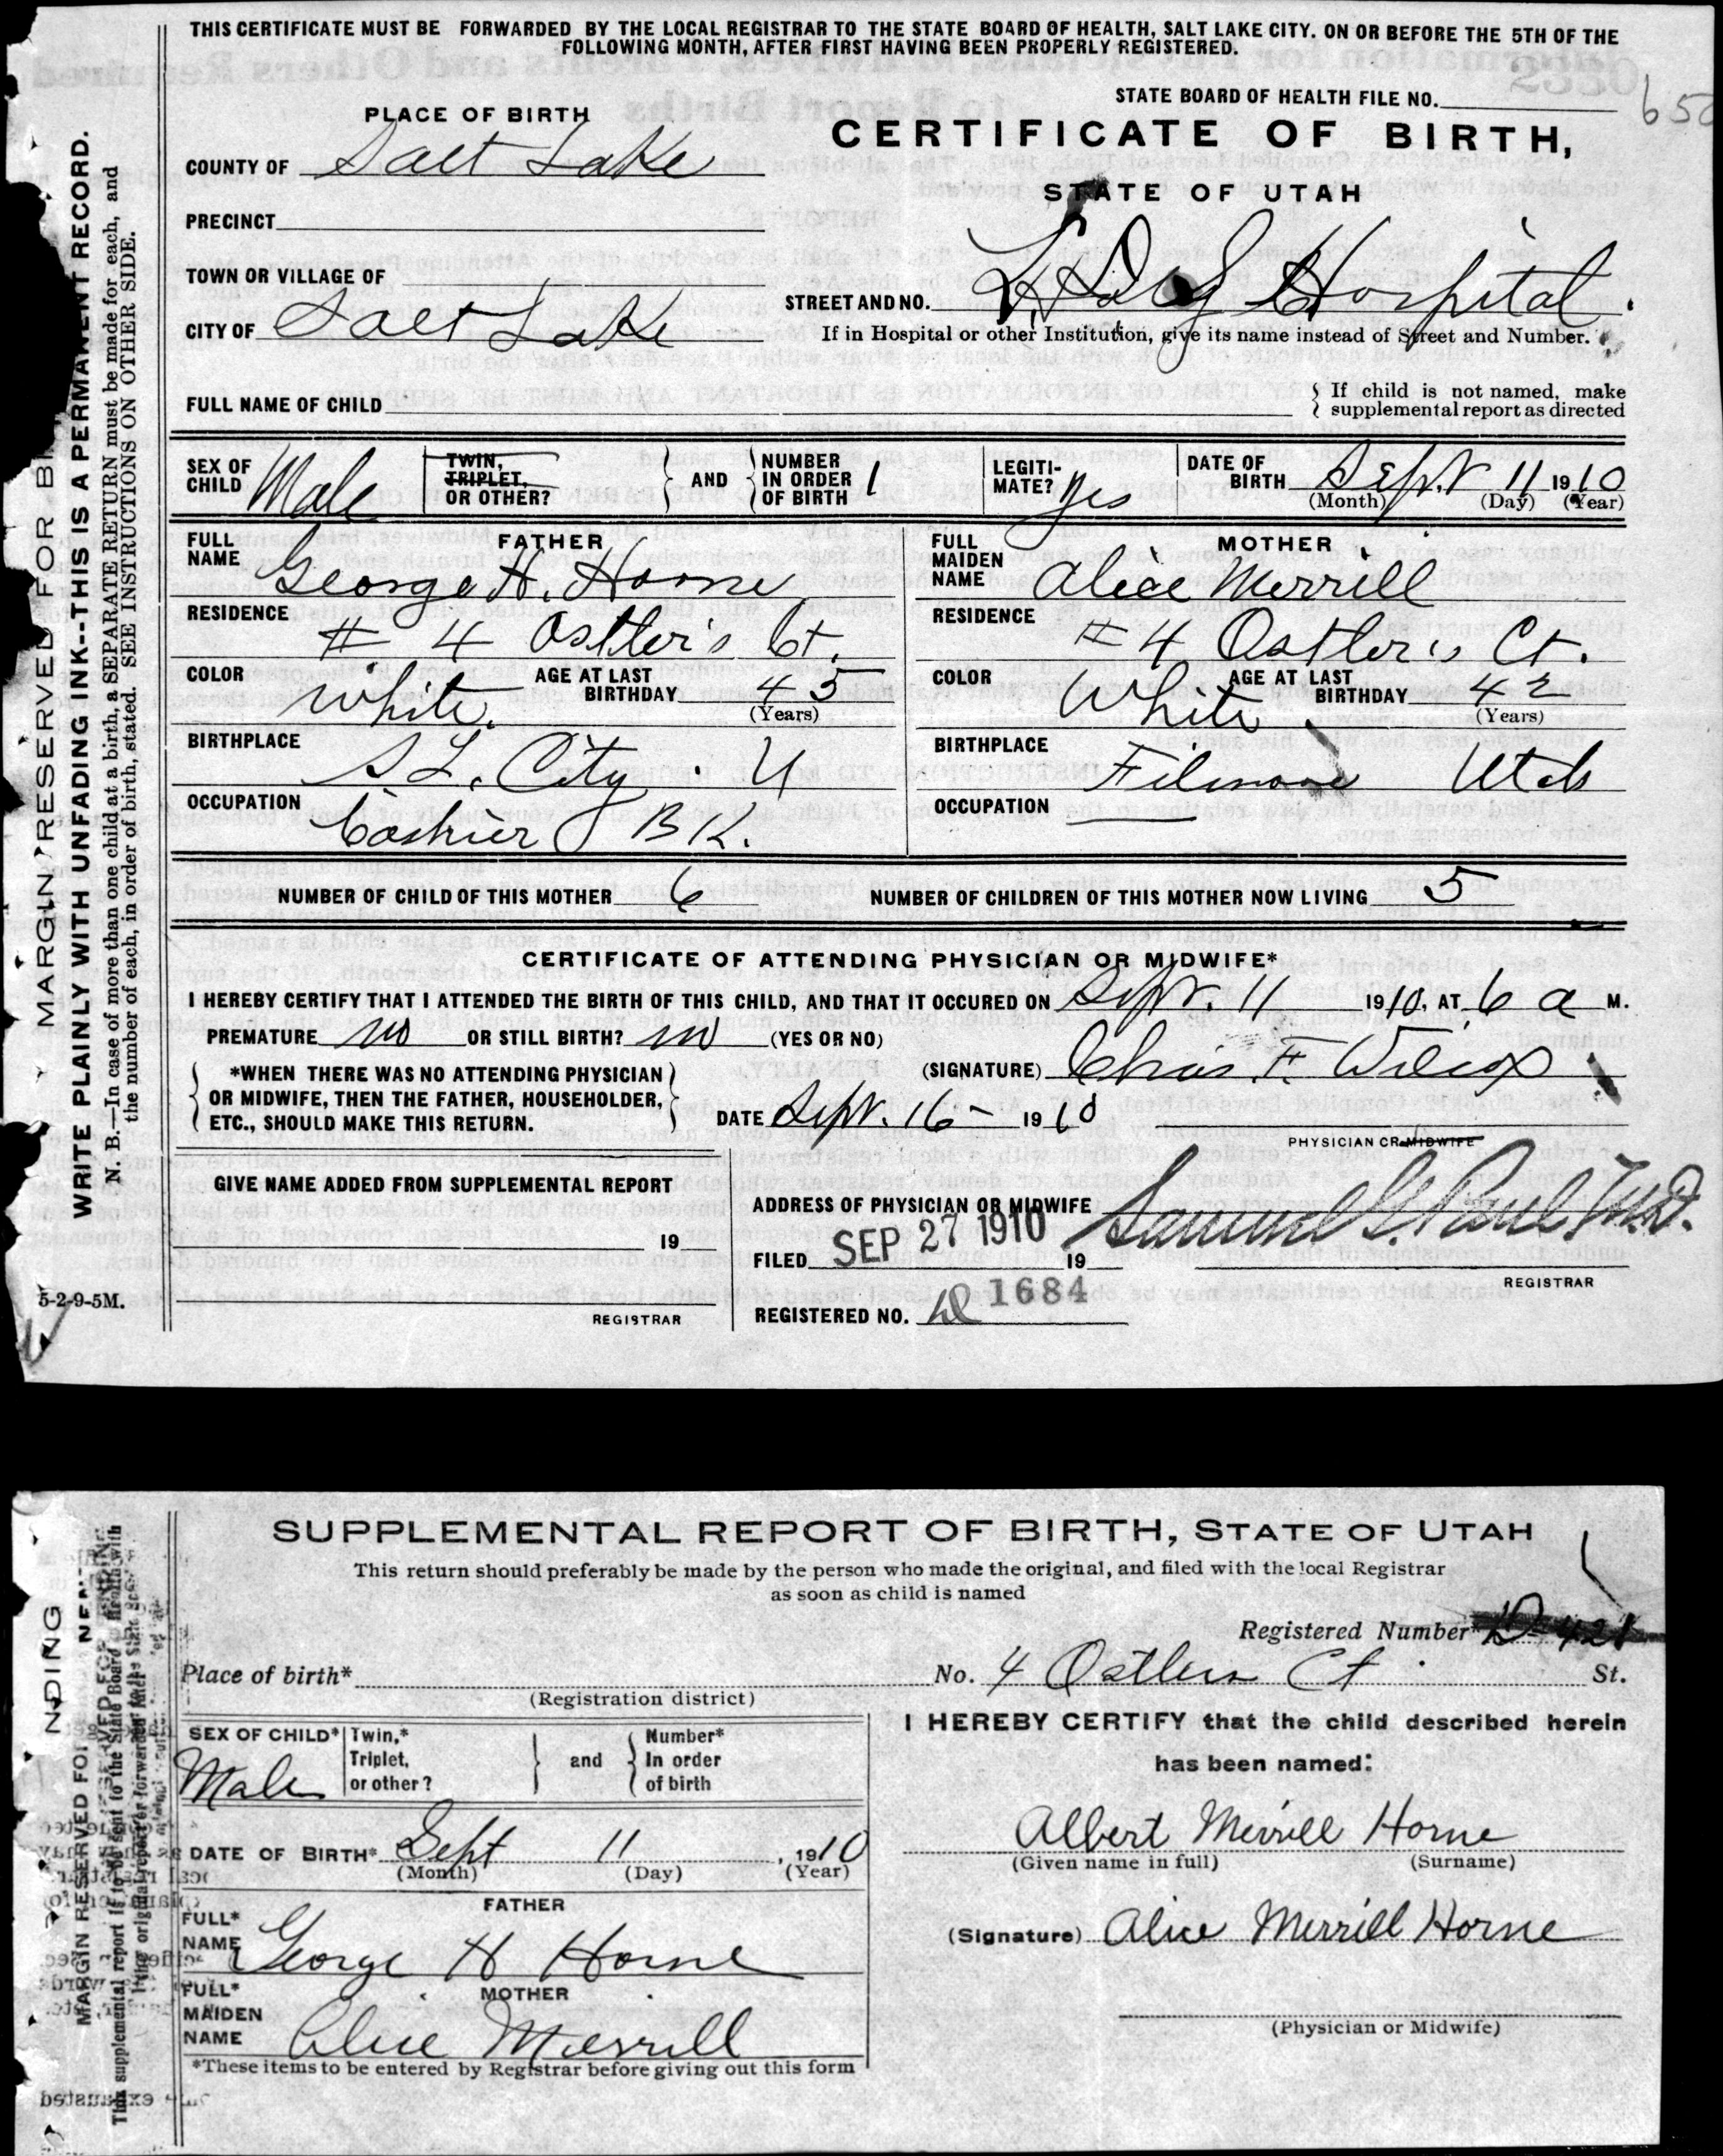 THIS CERTIFICATE MUST BE FORWARDED BY THE LOCAL REGISTRAR TO THE STATE BOARD OF HEALTH, SALT LAKE CITY. ON OR BEFORE THE 5TH OF THE
FOLLOWING MONTH, AFTER FIRST HAVING BEEN PROPERLY REGISTERED.
STATE BOARD OF HEALTH FILE NO.
PLACE OF BIRTH
CERTIFICATE OF BIRTH,
STATE OF UTAH
COUNTY OF Salt Lake
PRECINCT
TOWN OR VILLAGE OF
STREET AND NO. L.D.S Hospital.
CITY OF Salt Lake
If in Hospital or other Institution, give its name instead of Street and Number.
FULL NAME OF CHILD
If child is not named, make
supplemental report as directed
SEX OF CHILD Male
TWIN, TRIPLET, OR OTHER?
AND
NUMBER IN ORDER OF BIRTH 1
LEGITIMATE? yes
DATE OF BIRTH Sept 11 1910
(Month) (Day) (Year)
FATHER
FULL NAME George H. Horne
RESIDENCE # 4 Ostler's Ct.
COLOR White. AGE AT LAST BIRTHDAY 45
(Years)
BIRTHPLACE S L. City. U
OCCUPATION Cashier BK.
MOTHER
FULL MAIDEN NAME Alice Merrill
RESIDENCE # 4 Ostler's Ct.
COLOR White AGE AT LAST BIRTHDAY 42
(Years)
BIRTHPLACE Filmore Utah
OCCUPATION
NUMBER OF CHILD OF THIS MOTHER 6
NUMBER OF CHILDREN OF THIS MOTHER NOW LIVING 5
CERTIFICATE OF ATTENDING PHYSICIAN OR MIDWIFE*
I HEREBY CERTIFY THAT I ATTENDED THE BIRTH OF THIS CHILD, AND THAT IT OCCURED ON Sept. 11 1910, AT 6 a M.
PREMATURE no OR STILL BIRTH? no (YES OR NO)
(SIGNATURE) Chas. F. Wilcox
*WHEN THERE WAS NO ATTENDING PHYSICIAN
OR MIDWIFE, THEN THE FATHER, HOUSEHOLDER,
ETC., SHOULD MAKE THIS RETURN.
DATE Sept. 16 - 1910
PHYSICIAN OR MIDWIFE
GIVE NAME ADDED FROM SUPPLEMENTAL REPORT
19
REGISTRAR
ADDRESS OF PHYSICIAN OR MIDWIFE
Samuel G. Paul M.D.
FILED SEP 27 1910 19
REGISTRAR
REGISTERED NO. 1684
MARGIN RESERVED FOR BI
WRITE PLAINLY WITH UNFADING INK--THIS IS A PERMANENT RECORD.
N. B.—In case of more than one child at a birth, a SEPARATE RETURN must be made for each, and
the number of each, in order of birth, stated. SEE INSTRUCTIONS ON OTHER SIDE.
5-2-9-5M.
SUPPLEMENTAL REPORT OF BIRTH, STATE OF UTAH
This return should preferably be made by the person who made the original, and filed with the local Registrar
as soon as child is named
Registered Number* 421
Place of birth* No. 4 Ostlers Ct. St.
(Registration district)
SEX OF CHILD* Male
Twin,* Triplet, or other?
and
Number* In order of birth
DATE OF BIRTH* Sept 11, 1910
(Month) (Day) (Year)
FATHER
FULL* NAME George H Horne
MOTHER
FULL* MAIDEN NAME Alice Merrill
*These items to be entered by Registrar before giving out this form
I HEREBY CERTIFY that the child described herein
has been named:
Albert Merrill Horne
(Given name in full) (Surname)
(Signature) Alice Merrill Horne
(Physician or Midwife)
NDING
MARGIN RESERVED FOR